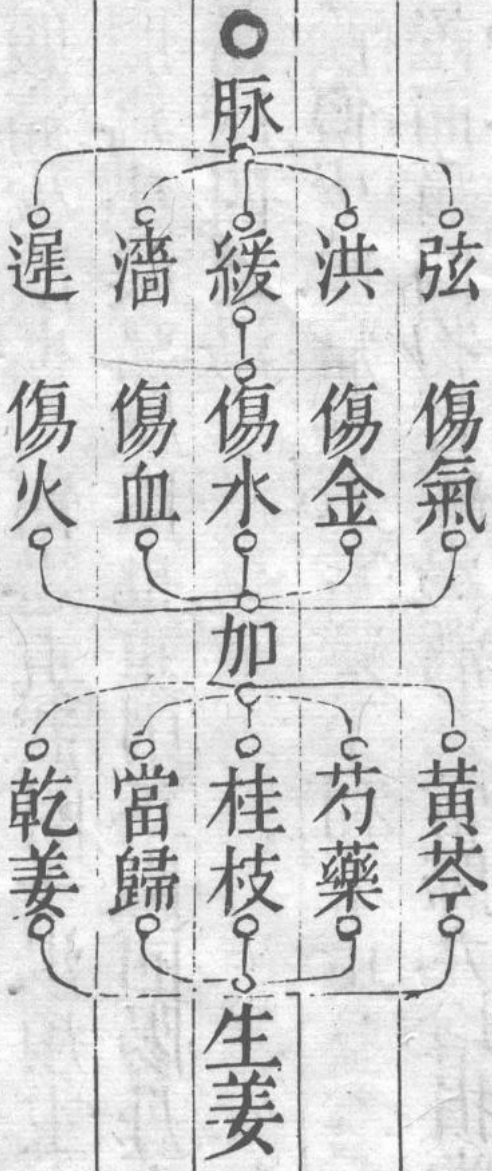 脉
弦
洪
緩
濇
遲
傷氣
傷金
傷水
傷血
傷火
加
黄芩
芍藥
桂枝
當歸
乾姜
生姜